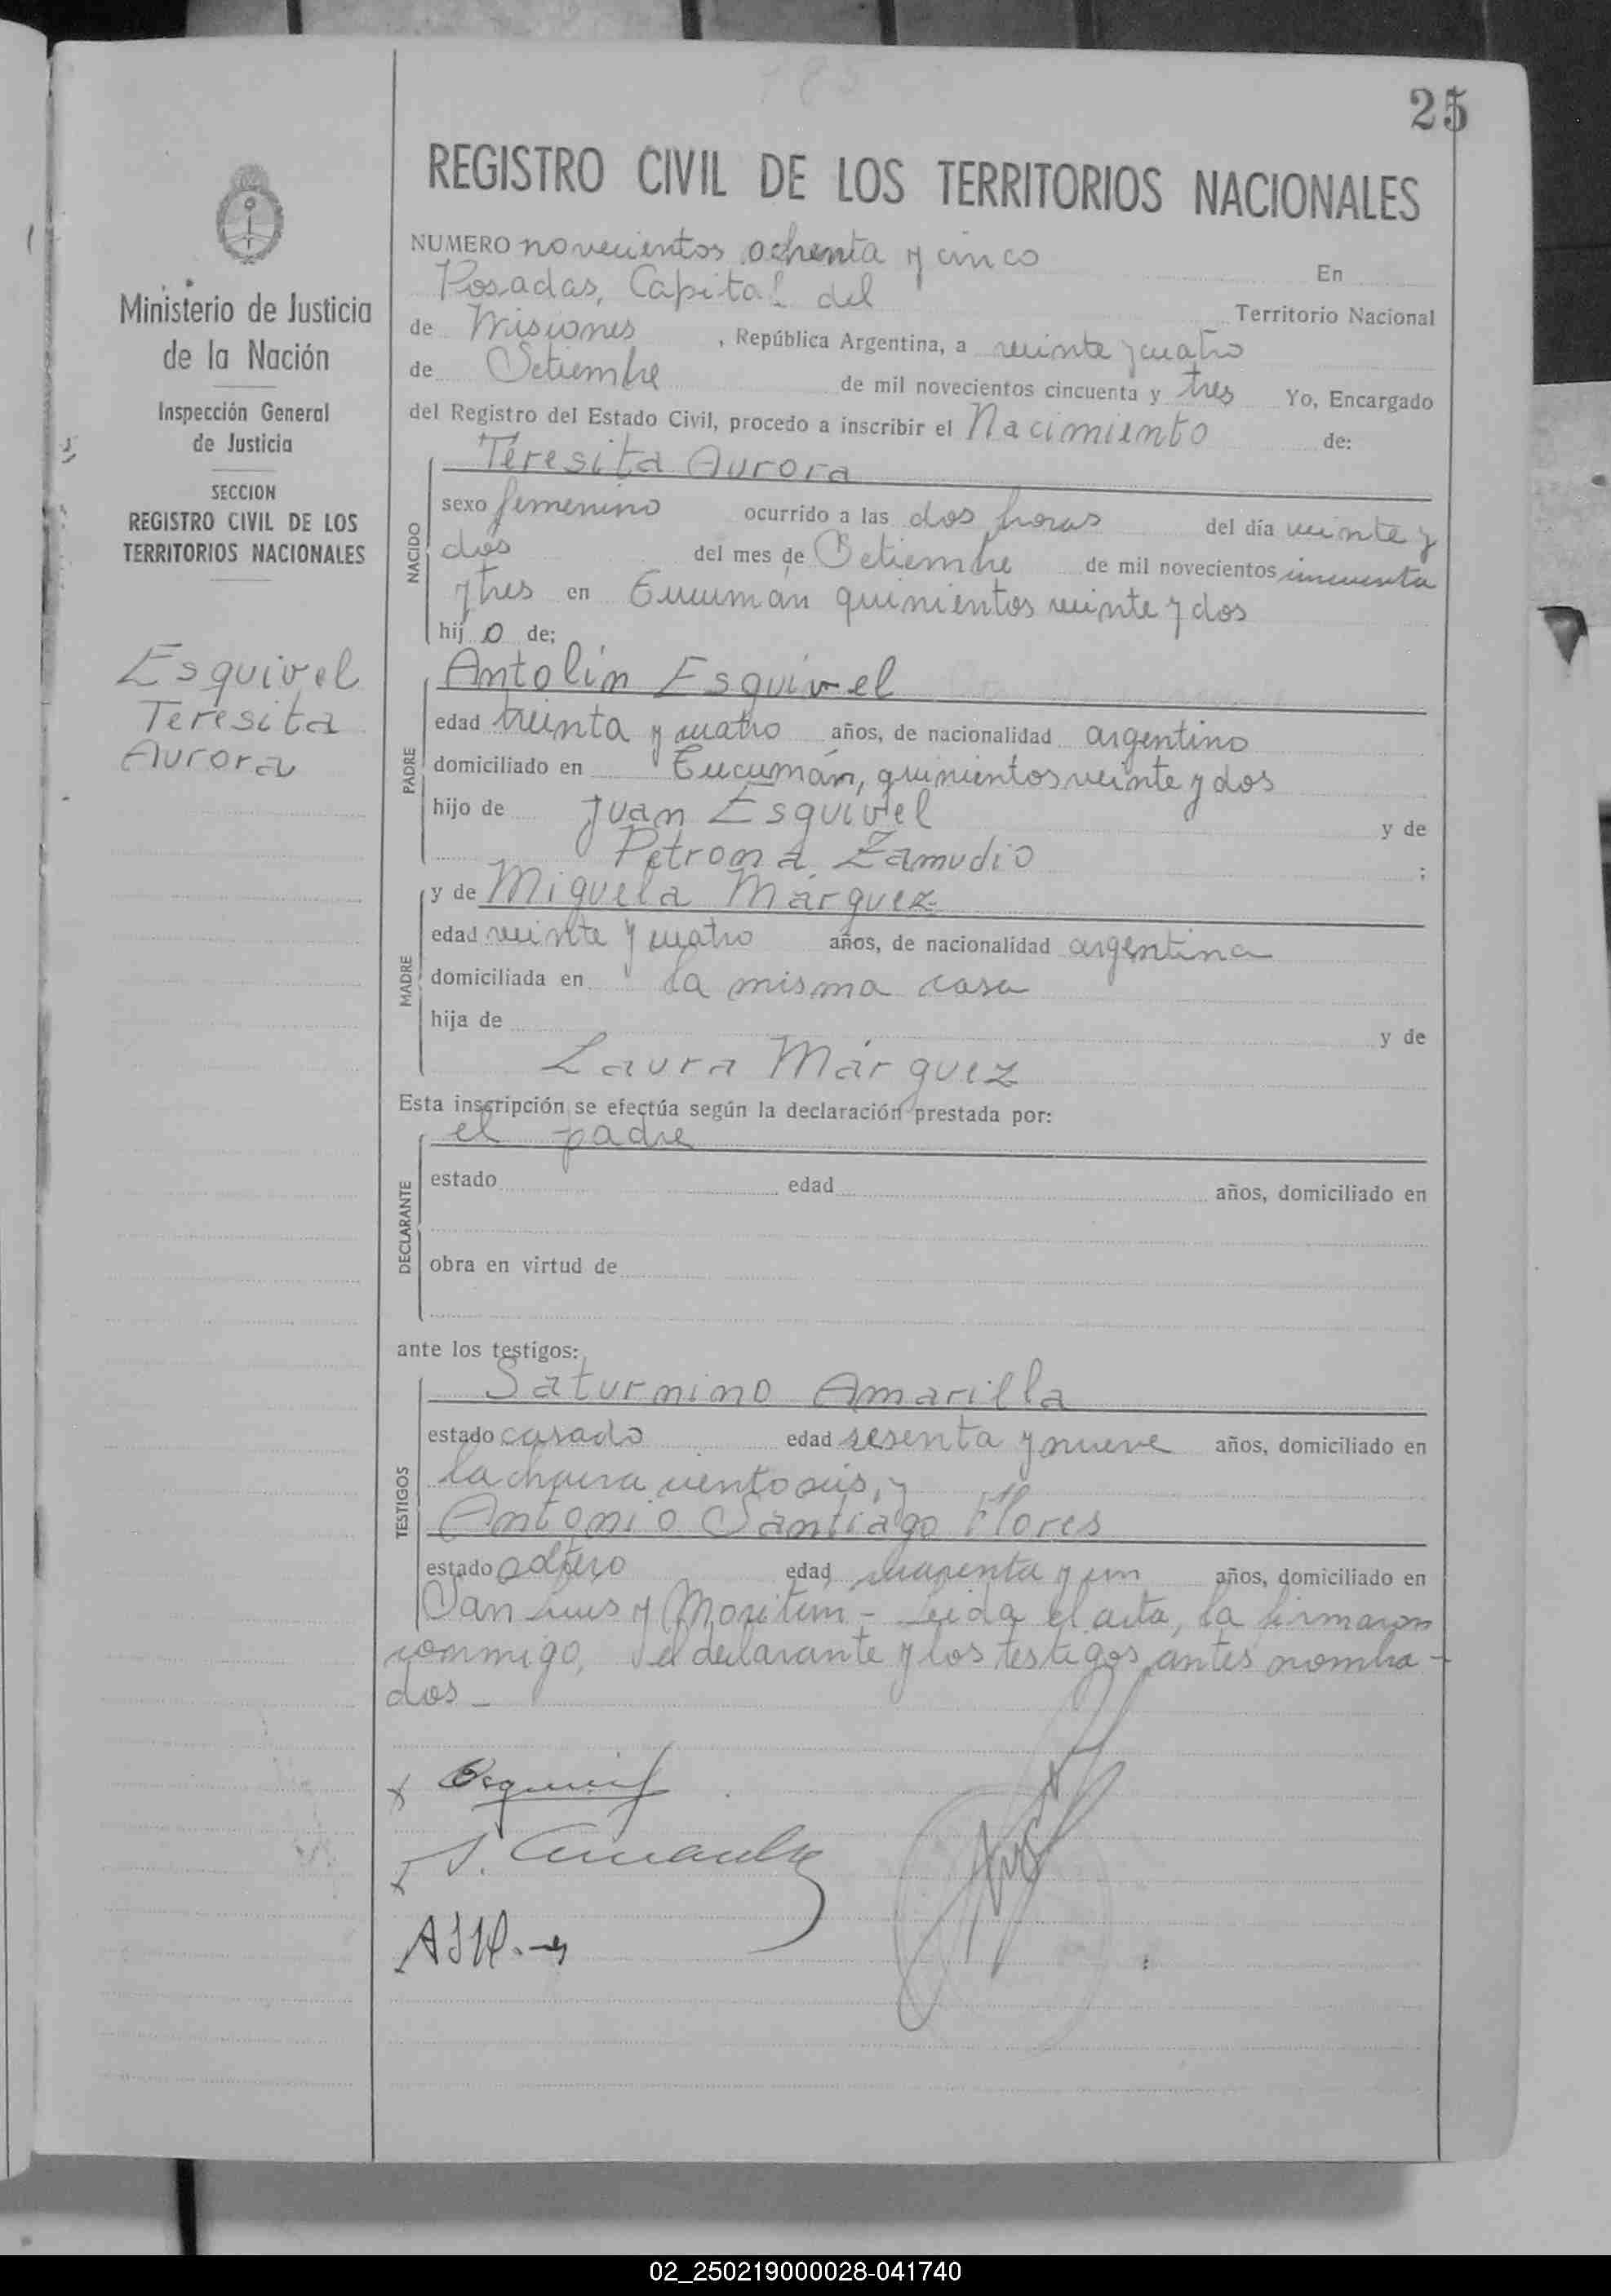 25
REGISTRO CIVIL DE LOS TERRITORIOS NACIONALES
Ministerio de Justicia
de la Nación
Inspección General
de Justicia
SECCION
REGISTRO CIVIL DE LOS
TERRITORIOS NACIONALES
Esquivel
Teresita
Aurora
NUMERO novecientos ochenta y cinco En
Posadas, Capital del Territorio Nacional
de Misiones, República Argentina, a veinte y cuatro
de Setiembre de mil novecientos cincuenta y tres Yo, Encargado
del Registro del Estado Civil, procedo a inscribir el Nacimiento de:
NACIDO
Teresita Aurora
sexo femenino ocurrido a las dos horas del día veinte y
dos del mes de Setiembre de mil novecientos cincuenta
y tres en Tucumán quinientos veinte y dos
hij o de;
PADRE
Antolín Esquivel
edad treinta y cuatro años, de nacionalidad argentino
domiciliado en Tucumán, quinientos veinte y dos
hijo de Juan Esquivel y de
Petrona Zamudio ;
MADRE
y de Miguela Márquez
edad veinte y cuatro años, de nacionalidad argentina
domiciliada en la misma casa
hija de y de
Laura Márquez
Esta inscripción se efectúa según la declaración prestada por:
DECLARANTE
el padre
estado edad años, domiciliado en
obra en virtud de
ante los testigos:
TESTIGOS
Saturnino Amarilla
estado casado edad sesenta y nueve años, domiciliado en
la chacra ciento seis, y
Antonio Santiago Flores
estado soltero edad cuarenta y un años, domiciliado en
San Luis y - Leida el acta, la firmaron
conmigo, el declarante y los testigos antes nombra-
dos -
x Esquivel
x S. Amarilla
02_250219000028-041740